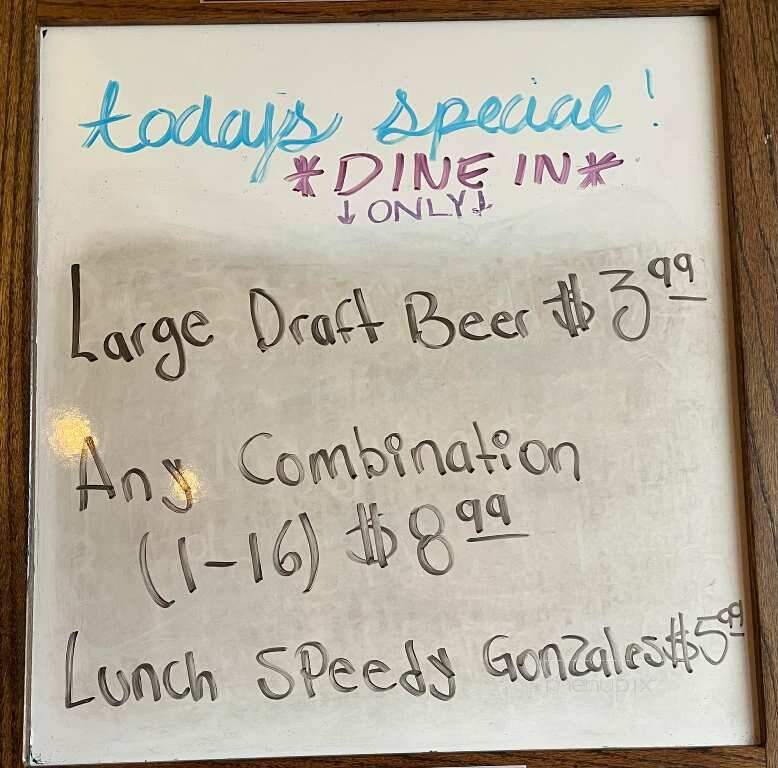 todays special!
*DINE IN*
↓ONLY↓
Large Draft Beer $3.99
Any Combination
(1-16) $8.99
Lunch Speedy Gonzales $5.99
menupix